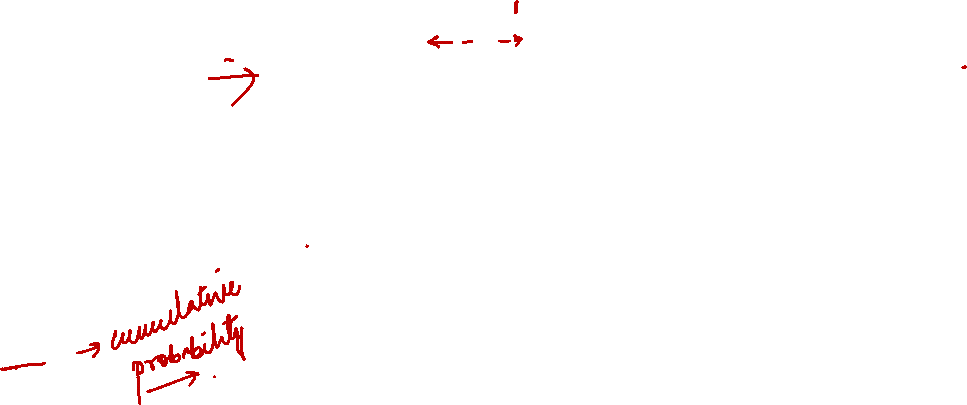 cumulative
probability